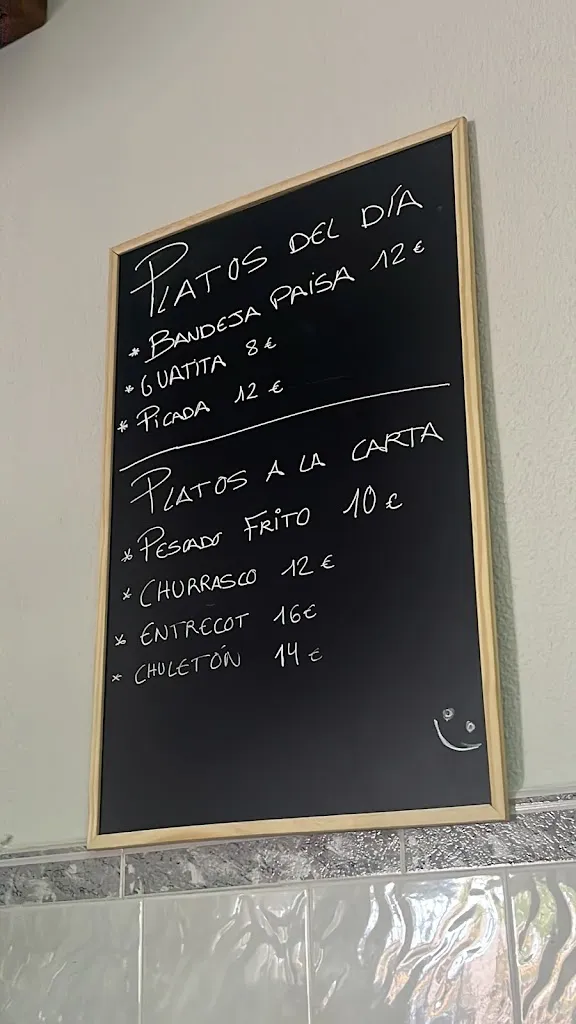 PLATOS DEL DÍA
* BANDEJA PAISA 12 €
* GUATITA 8 €
* PICADA 12 €
PLATOS A LA CARTA
* PESCADO FRITO 10 €
* CHURRASCO 12 €
* ENTRECOT 16 €
* CHULETÓN 14 €